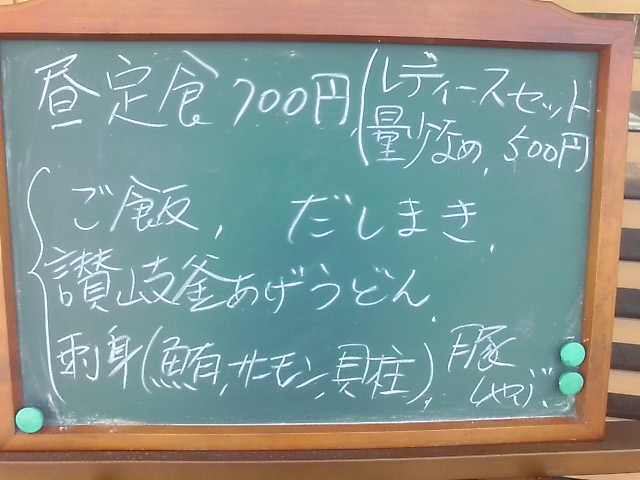 昼定食700円
(レディースセット
量少なめ、500円
ご飯、だしまき、
讃岐釜あげうどん、
刺身(鮪、サーモン、貝柱)、豚